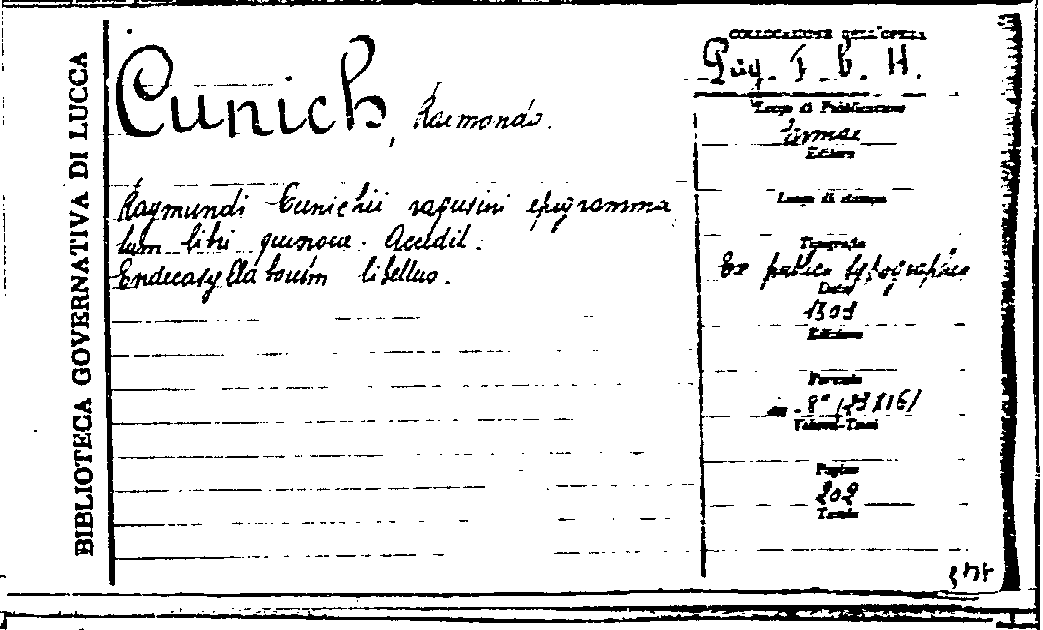 BIBLIOTECA GOVERNATIVA DI LUCCA
Cunich, Raimondo.
Raymundi Cunichii ragusini epigramma
tum libri quinque. Accedit.
Endecasyllaborum libellus.
COLLOCAZIONE DELL'OPERA
Luogo di Pubblicazione
Parmae
Editore
Luogo di stampa
Tipografia
Ex publico typographeo
Data
Edizione
Formato
Volumi-Tomi
Pagine
202
Tavole